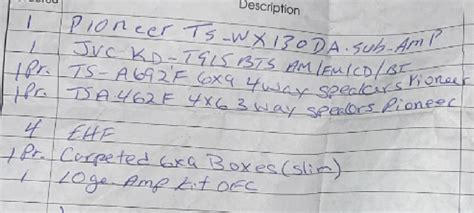 Description
1 Pioneer TS-WX130DA. Sub-Amp
1 JVC KD-T915BTS AM/FM/CD/BT
1Pr. TS-A692F 6x9 4way speakers Pioneer
1Pr. TSA462F 4x6 3way speakers Pioneer
4 EHF
1Pr. Carpeted 6x9 Boxes (slim)
1 10ga. Amp Kit OFC